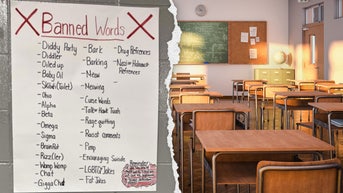 Banned Words
- Diddy Party
- Diddler
- Oiled up
- Baby Oil
- Skibidi (Toilet)
- Ohio
- Alpha
- Beta
- Omega
- Sigma
- BrainRot
- Rizz(ler)
- Womp Womp
- Chat
- Gigga Chat
- Bark
- Barking
- Meow
- Meowing
- Curse Words
- Talking About Trash
- Rage quitting
- Racist comments
- Pimp
- Encouraging Suicide
- LGBTQ Jokes
- Fat Jokes
- Drug References
- Nazi or Holocaust References